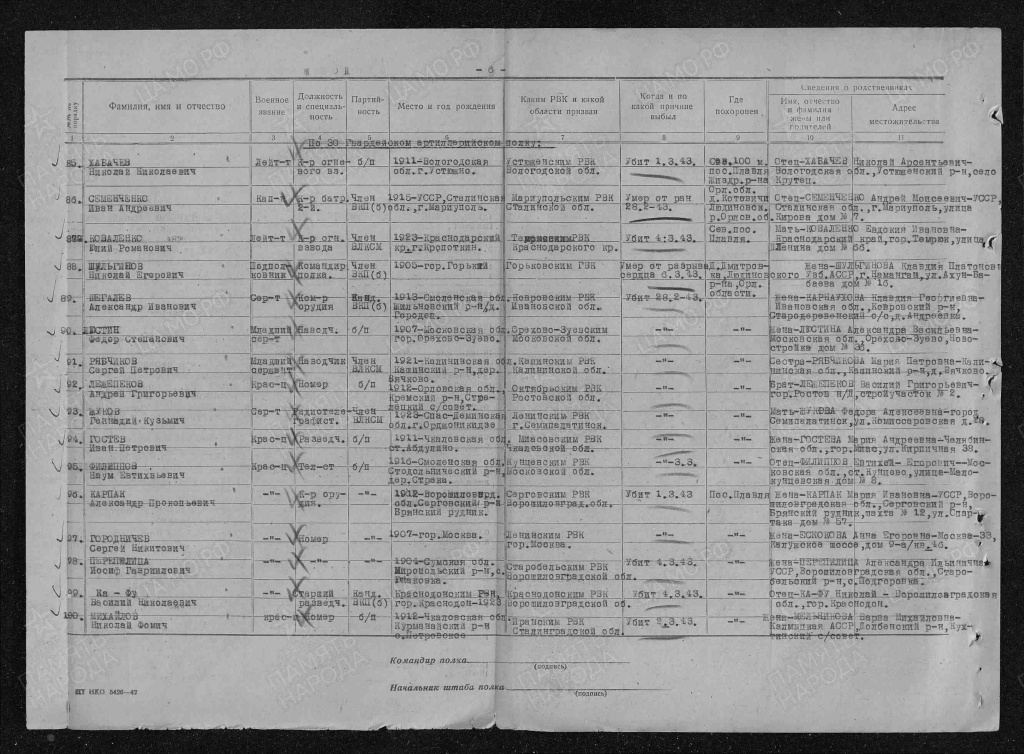 - 6 -
Фамилия, имя и отчество
Военное звание
Должность и специальность
Партийность
Место и год рождения
Каким РВК и какой области призван
Когда и по какой причине выбыл
Где похоронен
Сведения о родственниках
Имя, отчество и фамилия жены или родителей
Адрес местожительства
1 2 3 4 5 6 7 8 9 10 11
По 30 Гвардейском артиллерийском полку:
85. ХАБАЧЕВ Лейт-т К-р огне- б/п 1911-Вологодская Устюженским РВК Убит 1.3.43. Сев.100 м. Отец-ХАБАЧЕВ Николай Арсентьевич-
Николай Николаевич вого вз. обл.г.Устюжно. Вологодской обл. пос.Плавля Вологодская обл.,Устюженский р-н,село
Жиздр.р-на Крутец.
Орл.обл.
86. СЕМЕНЧЕНКО Кап-н К-р батр. Член 1915-УССР,Сталинская Мариупольским РВК Умер от ран д.Котовичи Отец-СЕМЕНЧЕНКО Андрей Моисеевич-УССР,
Иван Андреевич ВКП(б) обл.,г.Мариуполь. Сталинской обл. 28.2-43. Людиновск. Сталинская обл.,г.Мариуполь,улица
р.Орлов.об. Кирова дом № 7.
КОВАЛЕНКО Лейт-т К-р огн. Член 1923-Краснодарский РВК Убит 4.3.43. Сев.пос. Мать-КОВАЛЕНКО Евдокия Ивановна-
Юлий Романович взвода ВЛКСМ кр.г.Кропоткин. Краснодарского кр. Плавля. Краснодарский край,гор.Темрюк,улица
Ленина дом № 68.
88. ШУЛЬГИНОВ Подпол- Командир Член 1905-гор.Горький Горьковским РВК Умер от разрыва Жена-ШУЛЬГИНОВА Клавдия Платонова
Николай Егорович ковник полка. ВКП(б) сердца 6.3.43. Узб.АССР,г.Наманган,ул.Ахун-Ба-
р-на,Орл. баева дом № 16.
области.
89. ШЕГАЛЕВ Сер-т Ком-р Канд. 1913-Смоленская обл. Ковровским РВК Убит 28.2-43. Жена-КАРНАУХОВА Клавдия Георгиевна-
Александр Иванович орудия ВКП(б) р-н,д. Ивановской обл. Ивановская обл.,Ковровский р-н,
Городец. Стародеревенский с/с,д.Андреевка.
90. ЛЮСТИН Младший Наводч. б/п 1907-Московская обл. Орехово-Зуевским -"- -"- Жена-ЛЮСТИНА Александра Васильевна-
Федор Степанович сер-т гор.Орехово-Зуево. Московской обл. Московская обл.,Орехово-Зуево,Ново-
стройка дом № 38.
91. РЯБЧИКОВ Младший Наводчик Член 1921-Калининская обл. Кашинским РВК -"- -"- Сестра-РЯБЧИКОВА Мария Петровна-Кали-
Сергей Петрович сержант ВЛКСМ Кашинский р-н,дер. Калининской обл. нинская обл.,Кашинский р-н,д.Вячково.
Вячково.
92. ЛЕЖЕПЕКОВ Крас-ц Номер б/п 1912-Орловская обл. Октябрьским РВК -"- -"- Брат-ЛЕЖЕПЕКОВ Василий Григорьевич-
Андрей Григорьевич Кромский р-н,Стре- Ростовской обл. гор.Ростов н/Д,стройучасток № 2.
лецкий с/совет.
93. ЖУКОВ Сер-т Радиотеле- Член 1923-Спас-Деминская Ленинским РВК -"- -"- Мать-ЖУКОВА Федора Алексеевна-город
Геннадий Кузьмич графист. ВЛКСМ обл.г.Орджоникидзе г.Семипалатинск. Семипалатинск,ул.Комиссаровская
94. ГОСТЕВ Крас-ц Разведч. б/п 1911-Чкаловская обл. Миасовским РВК -"- -"- Жена-ГОСТЕВА Мария Андреевна-Челябин-
Иван Петрович ст.Абдулино. Чкаловской обл. ская обл.,гор.Миас,ул.Кирпичная 38.
95. ФИЛИППОВ Крас-ц Тел-ст б/п 1916-Смоленская обл. Кунцевским РВК -"-3.3. -"- Отец-ФИЛИППОВ Евтихий Егорович-Мос-
Наум Евтихьевич Стодольнический р-н, Московской обл. ковская обл.,ст.Кунцево,улица-Мало-
дер.Страка. кунцевская дом № 8.
96. КАРПАК -"- К-р ору- -"- 1912-Ворошиловгрд. Серговским РВК Убит 1.3.43 Пос.Плавля Жена-КАРПАК Мария Ивановна-УССР,Воро-
Александр Прокопьевич дия. обл.Серговский р-н Ворошиловград.обл. шиловградская обл.,Серговский р-н,
Брянский рудник. Брянский рудник,шахта № 12,ул.Спар-
така дом № 57.
97. ГОРОДНИЧЕВ -"- Номер -"- 1907-гор.Москва. Ленинским РВК -"- -"- Жена-ЕСЮКОВА Анна Егоровна-Москва-38,
Сергей Никитович гор.Москва. Калужское шоссе,дом 9-а/кв.46.
98. ПЕРЕПЕЛИЦА -"- -"- -"- 1904-Сумская обл, Старобельским РВК Убит 4.3.43. -"- Жена-ПЕРЕПИЛИЦА Александра Ильинична
Иосиф Гаврилович Миропольский р-н,с. Ворошиловградской обл. УССР,Ворошиловградская обл.,Старо-
бельский р-н,с.Подгоровка.
99. Ка - Фу -"- Старший Канд. Краснодонским РВК, Краснодонским РВК Убит 4.3.43. -"- Отец-КА-ФУ Николай - Ворошиловградская
Василий Николаевич разведч. ВКП(б) гор.Краснодон-1923 Ворошиловградской об. обл.,гор.Краснодон.
100. МИХАЙЛОВ крас-ц Номер б/п 1912-Чкаловская обл. РВК Убит 2.3.43. -"- Жена-МЕЛЬНИКОВА Варва Михайловна-
Николай Фомич Курманаевский р-н Сталинградской обл. Калмыцкая АССР,Долбенский р-н,Кух-
с.Петровское тинский с/совет.
Командир полка
(подпись)
Начальник штаба полка
(подпись)
ЦТ НКО 5426—42